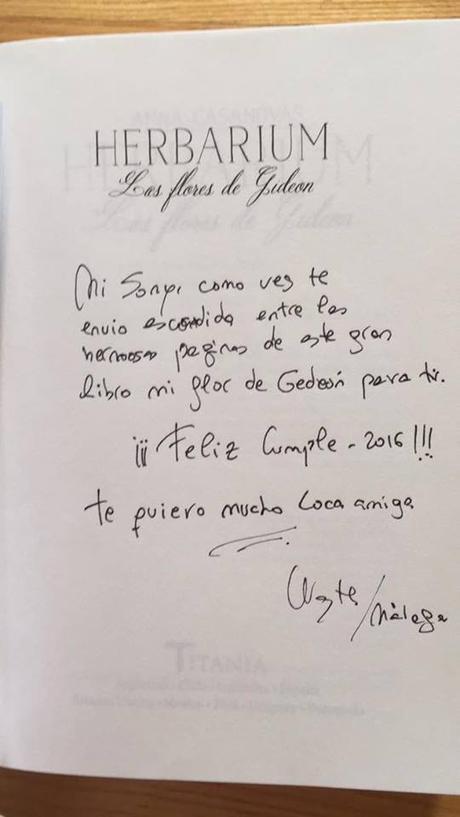 HERBARIUM
Las flores de Gideon
Mi Sonya como ves te
envio escondida entre las
hermosas paginas de este gran
libro mi flor de Gedeón para ti.
¡¡¡ Feliz Cumple - 2016 !!!
te quiero mucho Loca amiga
/Málaga
TITANIA